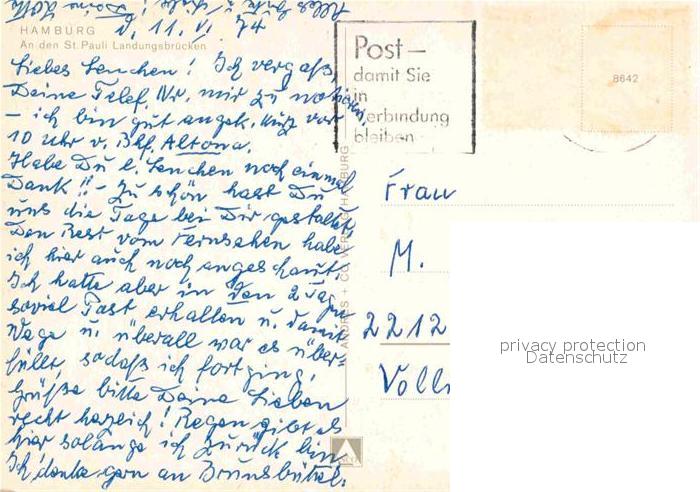 Alles Gute
HAMBURG
d. 11. VI. 74
An den St. Pauli Landungsbrücken
Liebes Lenchen! Ich vergaß,
Deine Telef. Nr. mir zu notieren.
- ich bin gut angek. kurz vor
10 Uhr v. Bhf. Altona.
Habe Du l. Lenchen noch einmal
Dank!! - Zu schön hast Du
uns die Tage bei Dir gestaltet.
Den Rest vom Fernsehen habe
ich hier auch noch angeschaut.
Ich hatte aber in den 2 Tagen
soviel Post erhalten u. damit
Wege u. überall war es über-
füllt, sodaß ich fort ging.
Grüße bitte Deine Lieben
recht herzlich! Regen gibt es
hier solange ich zurück bin
Ich denke gern an Brunsbüttel.
ANDRES + CO VERLAG HAMBURG
Post -
damit Sie
in
Verbindung
bleiben
8642
Frau
M.
2212
privacy protection
Datenschutz